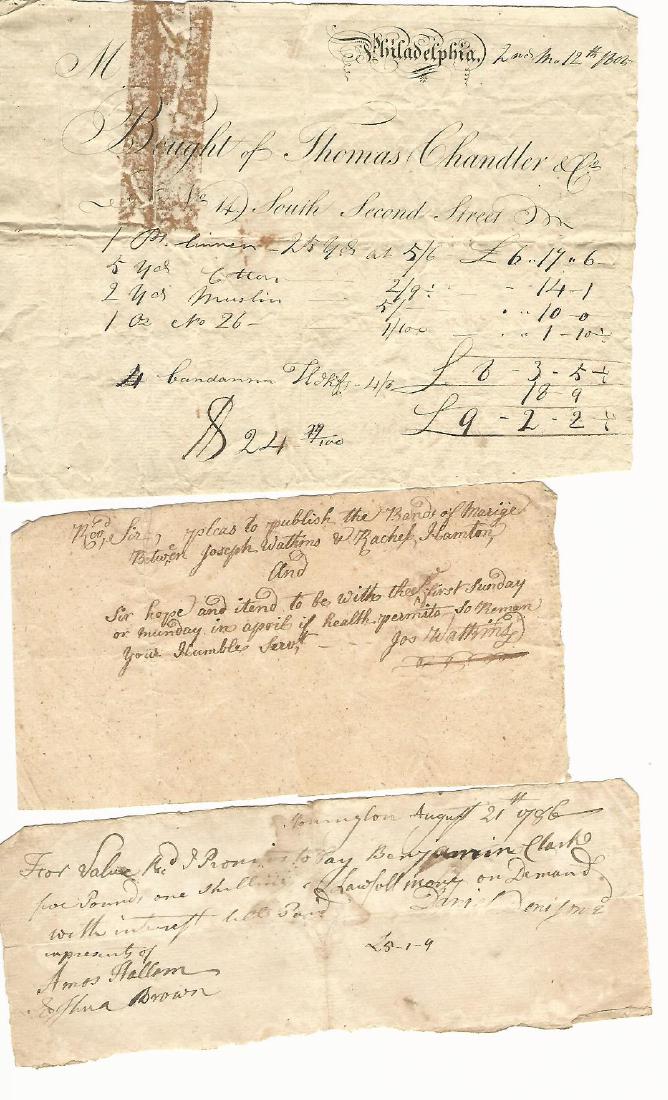 Philadelphia, 2nd Mo. 12th
M
Bought of Thomas Chandler & Co.
No. 14) South Second Street
1 Ps. linnen - 25 Yds at 5/6 £ 6 .. 17 .. 6
5 Yds Cotton 2/9 3/4 " 14 - 1
2 Yds Muslin 5/- " 10 - 0
1 Oz No 26 - 1 - 10 1/2
£ 8 - 3 - 5 1/2
4 bandanna Hdkfs - 18 9
£ 9 - 2 - 2 1/2
$ 24 29/100
Revd, Sir, pleas to publish the Bands of Marige
Between Joseph Watkins & Rachel, Hamton,
And
Sir hope and itend to be with thee first Sunday
or munday in april if health permits so Remain
Your Humble Servt Jos Watkins
August 21th 1796
For Value Recd I Promise to Pay Benjamin Clark
five Pounds one Shilling Lawfull money on Demand
with interest till Paid Daniel
£5-1-9
in presents of
Amos Hallem
Joshua Brown